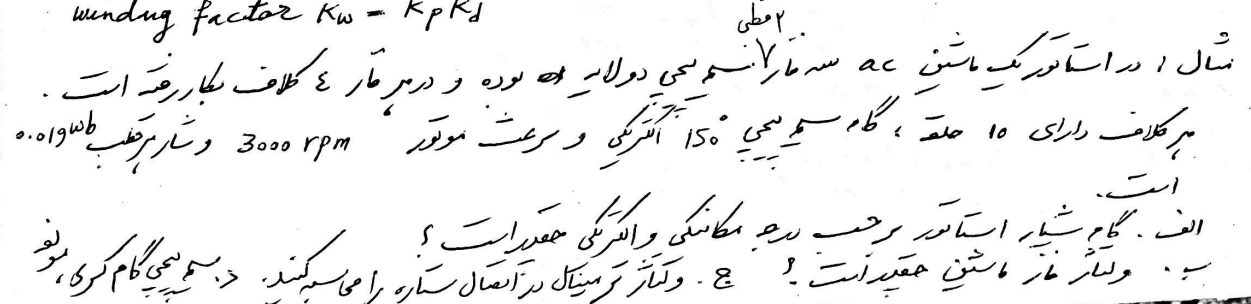 winding factor Kw = Kp Kd
۲ قطبی
مثال ۱ در استاتور یک ماشین ac سه فاز سیم پیچی دولایه بوده و در هر فاز ٤ کلاف بکار رفته است .
هر کلاف دارای 10 حلقه ، گام سیم پیچی 150° الکتریکی و سرعت موتور 3000 rpm و شار هر قطب 0.019 wb
است.
الف . گام شیار استاتور بر حسب درجه مکانیکی و الکتریکی چقدر است ؟
ب . ولتاژ فاز ماشین چقدر است ؟ ج . ولتاژ ترمینال در اتصال ستاره را محاسبه کنید. د. سیم پیچی گام کسری،